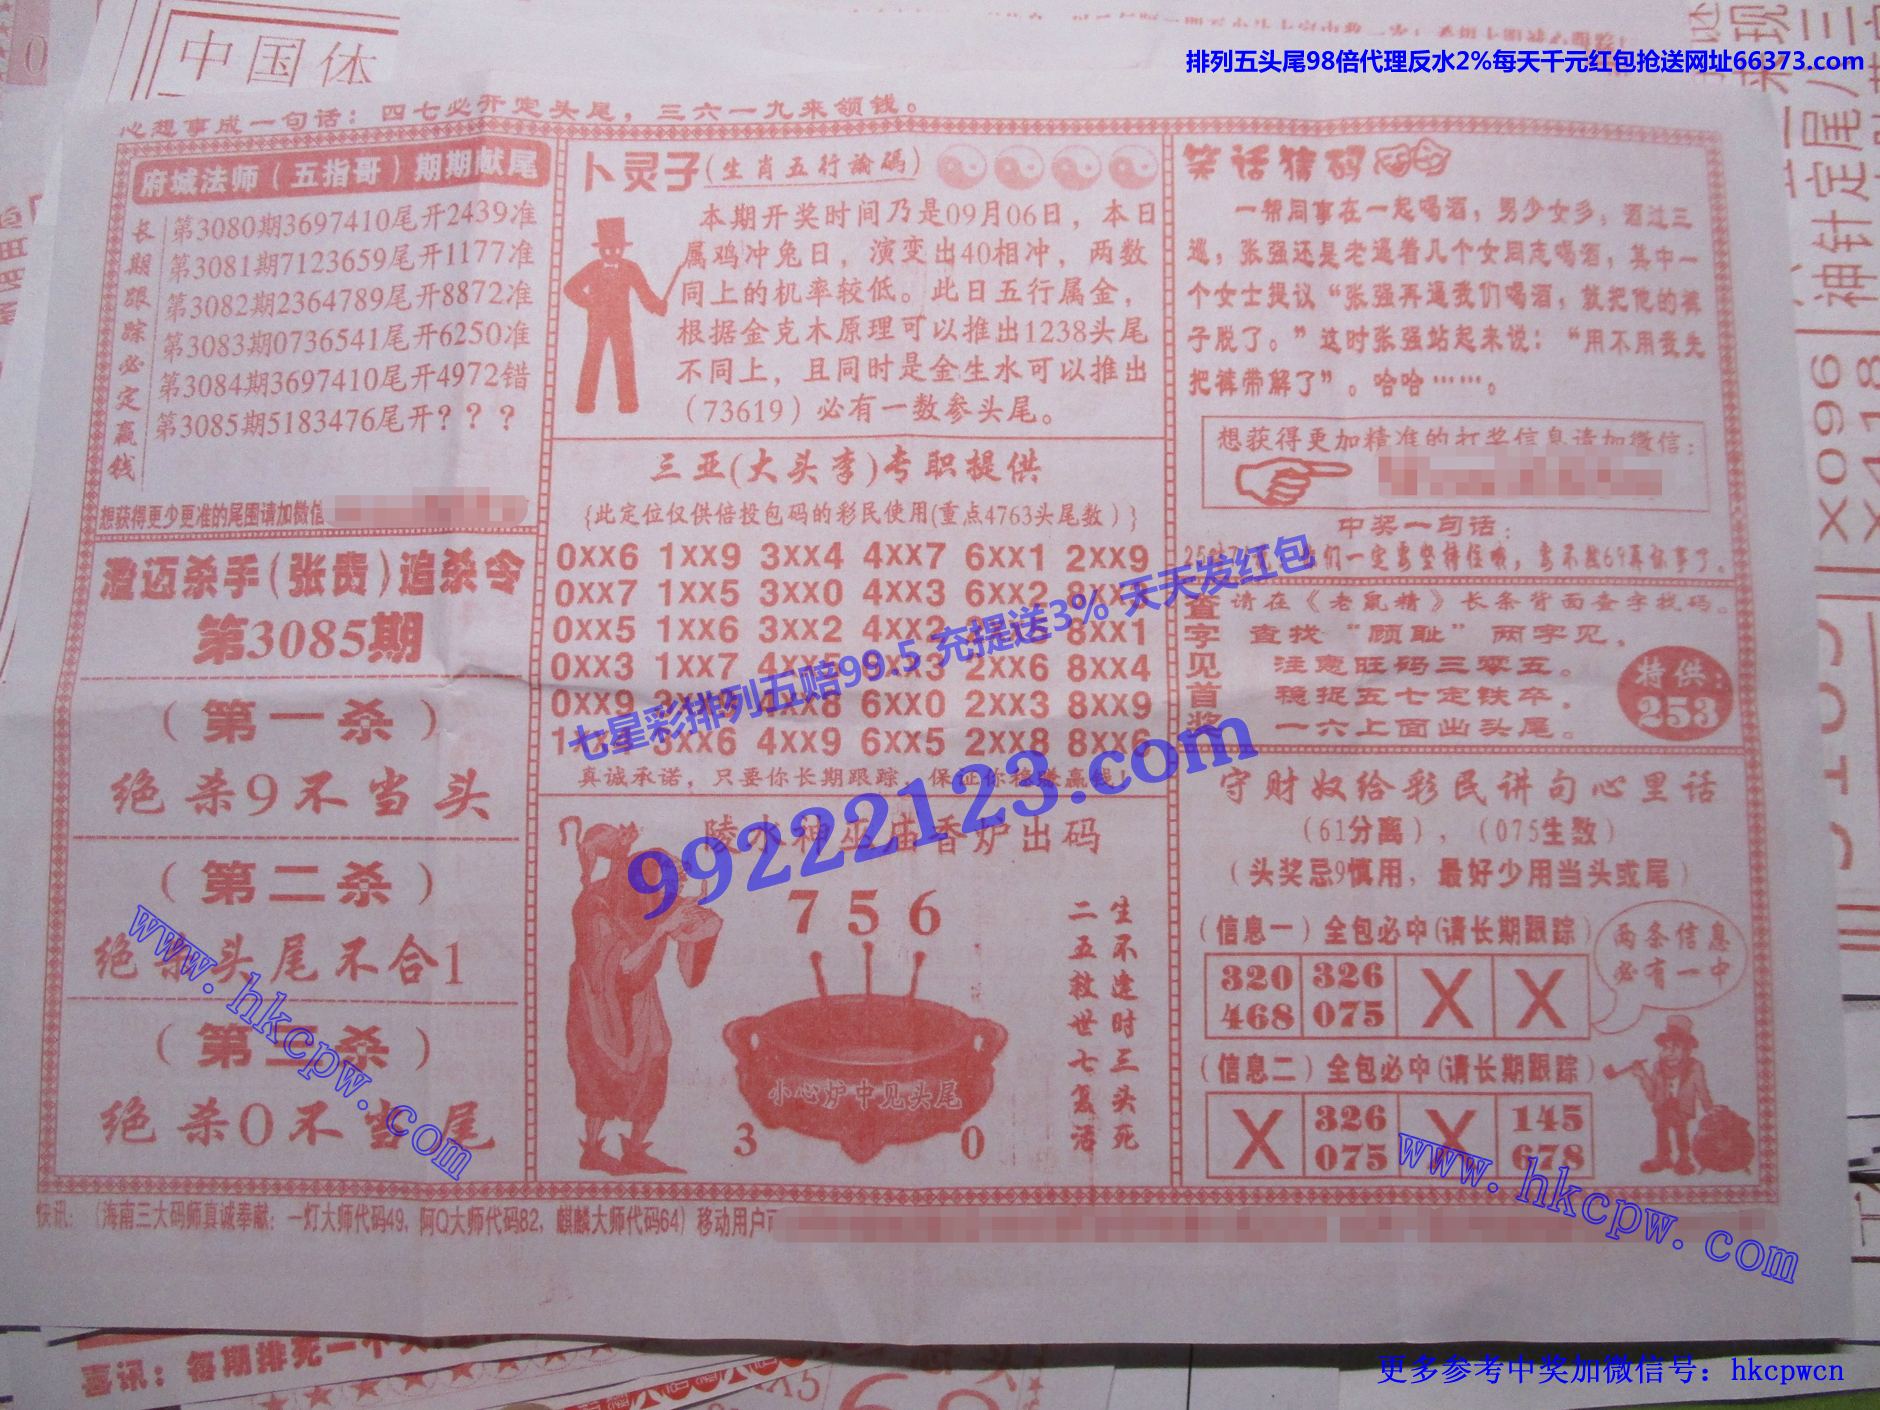 中国体
排列五头尾98倍代理反水2%每天千元红包抢送网址66373.com
心想事成一句话：四七必开定头尾，三六一九来领钱。
府城法师（五指哥）期期献尾
长期跟踪必定赢钱
第3080期3697410尾开2439准
第3081期7123659尾开1177准
第3082期2364789尾开8872准
第3083期0736541尾开6250准
第3084期3697410尾开4972错
第3085期5183476尾开？？？
想获得更少更准的尾围请加微信
澄迈杀手（张贵）追杀令
第3085期
（第一杀）
绝杀9不当头
（第二杀）
绝杀头尾不合1
（第三杀）
绝杀0不当尾
卜灵子（生肖五行論碼）
本期开奖时间乃是09月06日，本日
属鸡冲兔日，演变出40相冲，两数
同上的机率较低。此日五行属金，
根据金克木原理可以推出1238头尾
不同上，且同时是金生水可以推出
（73619）必有一数参头尾。
三亚(大头李)专职提供
{此定位仅供倍投包码的彩民使用(重点4763头尾数）}
0xx6 1xx9 3xx4 4xx7 6xx1 2xx9
0xx7 1xx5 3xx0 4xx3 6xx2 8xx3
0xx5 1xx6 3xx2 4xx2 8xx1
0xx3 1xx7 4xx5 9xx3 2xx6 8xx4
0xx9 2xx3 4xx8 6xx0 2xx3 8xx9
3xx6 4xx9 6xx5 2xx8 8xx6
真诚承诺，只要你长期跟踪，保证你稳赚赢钱！
七星彩排列五赔99.5 充提送3% 天天发红包
99222123.com
陵水神巫庙香炉出码
7 5 6
小心炉中见头尾
3 0
生不逢时三头死
二五救世七复活
笑话猜码
一帮同事在一起喝酒，男少女多，酒过三
巡，张强还是老逼着几个女同志喝酒，其中一
个女士提议“张强再逼我们喝酒，就把他的裤
子脱了。”这时张强站起来说：“用不用我先
把裤带解了”。哈哈……。
想获得更加精准的打奖信息请加微信：
中奖一句话：
们一定要坚持住哦，要不然69再坏事了。
查字见首奖
请在《老鼠精》长条背面查字找码。
查找“顾耻”两字见，
注意旺码三零五。
稳捉五七定铁卒，
一六上面出头尾。
特供：
253
守财奴给彩民讲句心里话
（61分离），（075生数）
（头奖忌9慎用，最好少用当头或尾）
（信息一）全包必中(请长期跟踪)
320 326 X X
468 075
两条信息
必有一中
（信息二）全包必中(请长期跟踪)
X 326 X 145
075 678
快讯：（海南三大码师真诚奉献：一灯大师代码49，阿Q大师代码82，麒麟大师代码64）移动用户
www.hkcpw.com
www.hkcpw.com
喜讯：每期排死一个
更多参考中奖加微信号：hkcpwcn
神针定尾
X096
X418